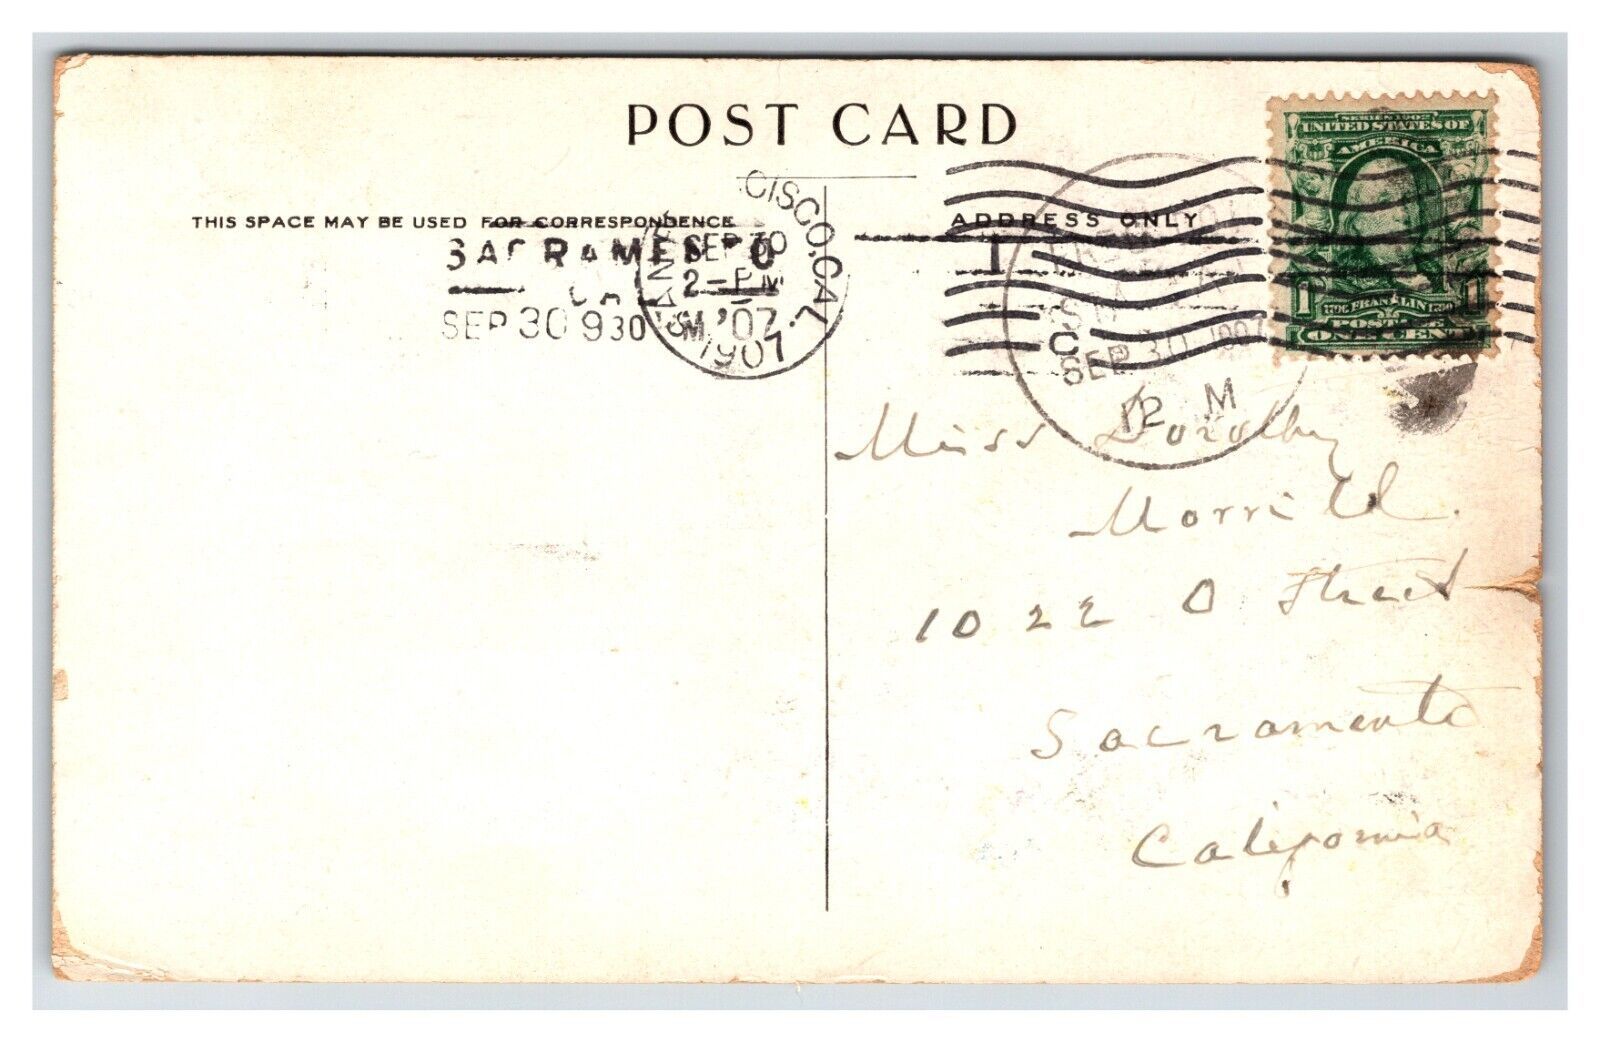 POST CARD
THIS SPACE MAY BE USED FOR CORRESPONDENCE
ADDRESS ONLY
SERIES 1902
UNITED STATES OF
AMERICA
1 FRANKLIN 1
POSTAGE
ONE CENT
CISCO, CAL.
1907
SEP 30
2-PM
'07
SACRAMENTO
CA
SEP 30 930 M
SEP 30 1907
12 M
Miss Dorothy
Morrill.
1022 O Street
Sacramento
California